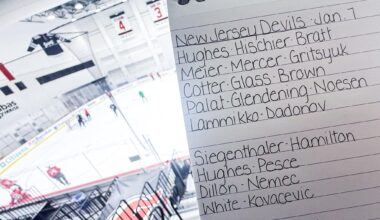 New Jersey Devils · Jan. 7
Hughes · Hischier · Bratt
Meier · Mercer · Gritsyuk
Cotter · Glass · Brown
Palat · Glendening · Noesen
Lammikko · Dadonov
Siegenthaler · Hamilton
Hughes · Pesce
Dillon · Nemec
White · Kovacevic
4
3